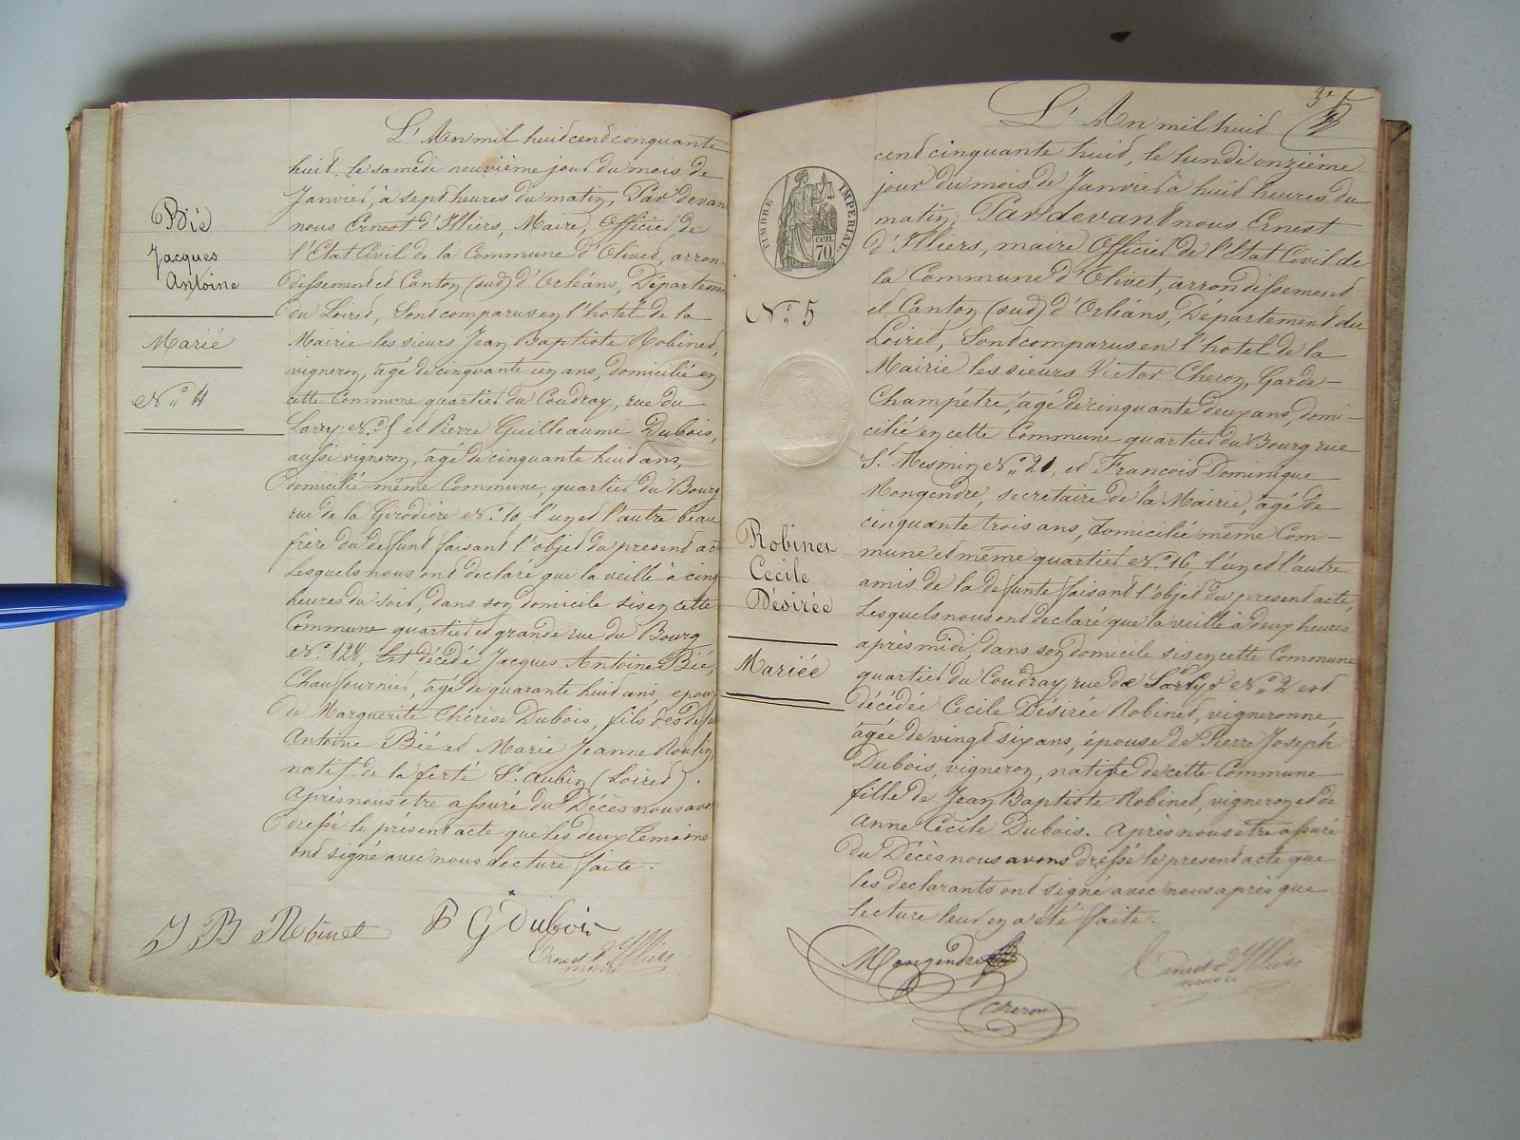 L'An mil huit cent cinquante
huit, le samedi neuvième jour du mois de
Janvier, à sept heures du matin, Par devan
nous Ernest d'Illiers, Maire, Officier de
l'Etat Civil de la Commune d'Olivet, arron
dissement et Canton (sud) d'Orléans, Départemen
du Loiret, Sont comparus en l'hotel de la
Mairie les sieurs Jean Baptiste Robinet,
vigneron, âgé de cinquante un ans, domicilié en
cette Commune quartier du Coudray, rue du
Larry N.° 5 et Pierre Guilleaume Dubois,
aussi vigneron, âgé de cinquante huit ans,
domicilié même Commune, quartier du Bourg
rue de la Girodière N.° 10, l'un et l'autre beau
frère du défunt faisant l'objet du présent ac
Lesquels nous ont declaré que la veille à cinq
heures du soir, dans son domicile sis en cette
Commune quartier et grande rue du Bourg
N.° 128, Est décédé Jacques Antoine Bié,
Chaufournier, âgé de quarante huit ans, epoux
de Marguerite Thérèse Dubois, fils des
Antoine Bié et Marie Jeanne
natif de la ferté S.t Aubin (Loiret).
Après nous être assuré du Décès nous avo
dressé le présent acte que les deux témoins
ont signé avec nous lecture faite.
Bié
Jacques
Antoine
Marié
N.° 4
J B Robinet
P G Dubois
Ernest d'Illiers
maire
3e f
L'An mil huit
cent cinquante huit, le lundi onzième
jour du mois de Janvier à huit heures du
matin, Par devant nous Ernest
d'Illiers, maire Officier de l'Etat Civil de
la Commune d'Olivet, arrondissement
et Canton (sud) d'Orléans, Département du
Loiret, Sont comparus en l'hotel de la
Mairie les sieurs Victor Cheron, Garde-
Champêtre, âgé de cinquante deux ans, domi-
cilié en cette Commune quartier du Bourg rue
S.t Mesmin N.° 21, et François Dominique
Mongendre, secrétaire de la Mairie, âgé de
cinquante trois ans, domicilié même Com-
mune et même quartier N.° 16, l'un et l'autre
amis de la défunte faisant l'objet du present acte,
Lesquels nous ont declaré que la veille à deux heures
après midi, dans son domicile sis en cette Commune
quartier du Coudray, rue de Larry N.° 2 est
décédée Cecile Désirée Robinet, vigneronne,
âgée de vingt six ans, épouse de Pierre Joseph
Dubois, vigneron, native de cette Commune
fille de Jean Baptiste Robinet, vigneron et de
Anne Cécile Dubois. Après nous être assuré
du Décès nous avons dressé le present acte que
les declarants ont signé avec nous après que
lecture leur en a été faite.
TIMBRE IMPERIAL
CEN.
70
N.° 5
Robinet
Cecile
Désirée
Mariée
Mongendre
Cheron
Ernest d'Illiers
maire